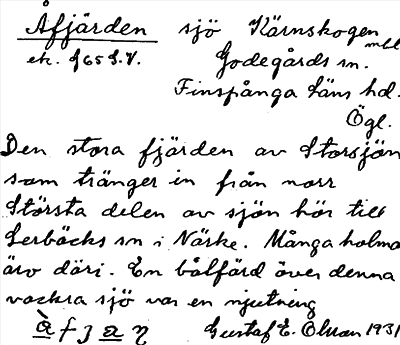 Åfjärden sjö Kärnskogen mbl
ek. f65 S.V. Godegårds sn.
Finspånga läns hd.
Ögl.
Den stora fjärden av Storsjön
som tränger in från norr
Största delen av sjön hör till
Lerbäcks sn i Närke. Många holmar
äro däri. En båtfärd över denna
vackra sjö var en njutning
Gustaf E. Olsson 1931